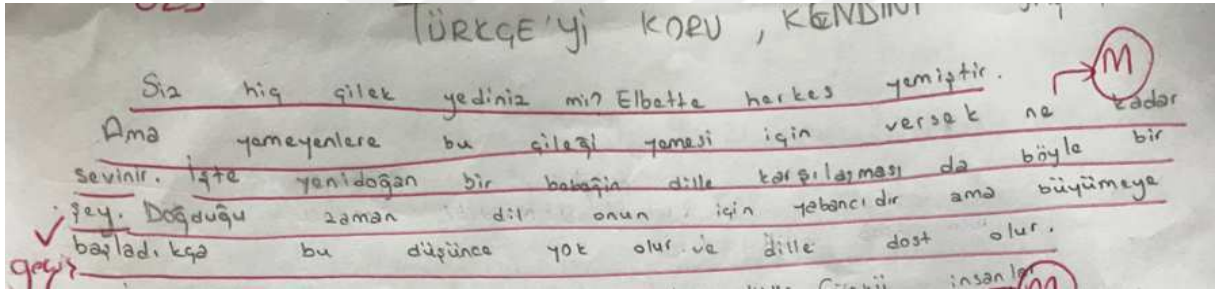 TÜRKÇE'yi KORU, KENDİNİ
Siz hiç çilek yediniz mi? Elbette herkes yemiştir.
M
Ama yemeyenlere bu çileği yemesi için versek ne kadar
sevinir. İşte yenidoğan bir bebeğin dille karşılaşması da böyle bir
şey. Doğduğu zaman dil onun için yabancıdır ama büyümeye
başladıkça bu düşünce yok olur ve dille dost olur.
geçiş
insanlar